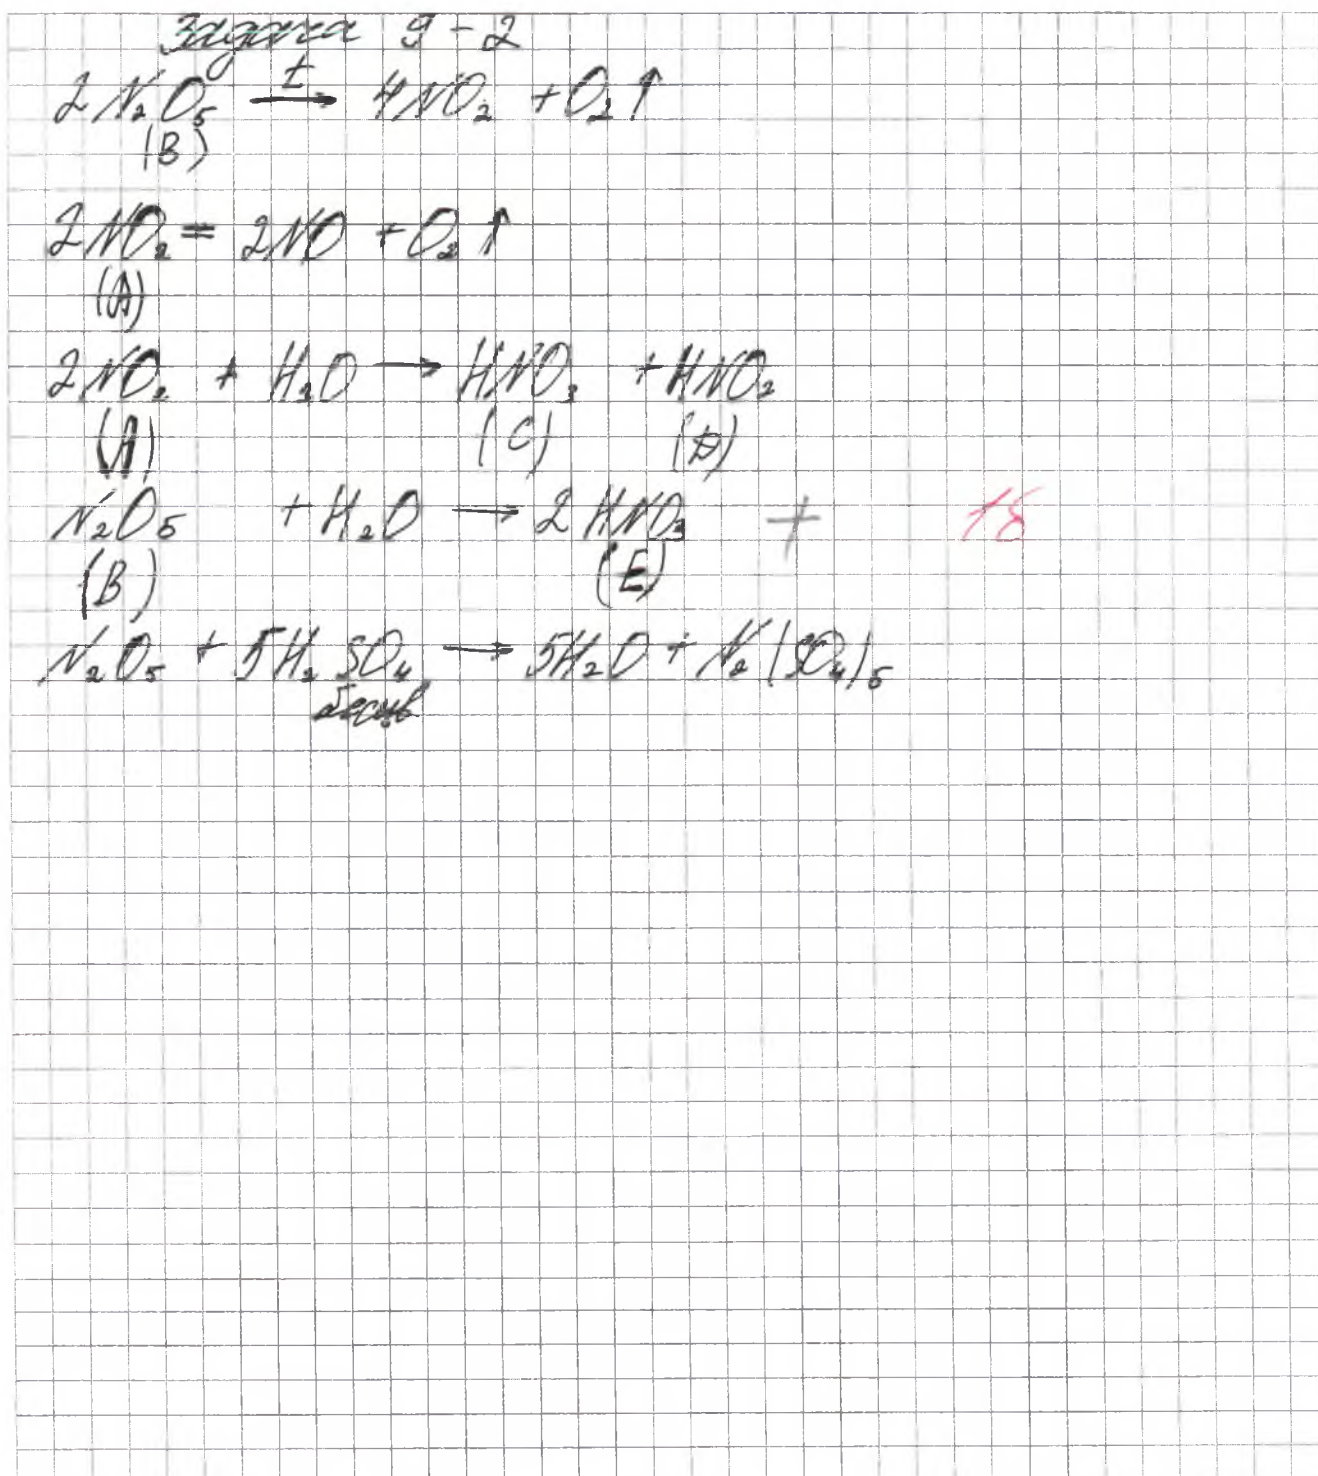 Задача 9-2
2N₂O₅ —t→ 4NO₂ + O₂↑
(B)
2NO₂ = 2NO + O₂↑
(A)
2NO₂ + H₂O → HNO₃ + HNO₂
(A) (C) (D)
N₂O₅ + H₂O → 2HNO₃ +
(B) (E)
N₂O₅ + 5H₂SO₄ → 5H₂O + N₂(SO₄)₅
бесцв